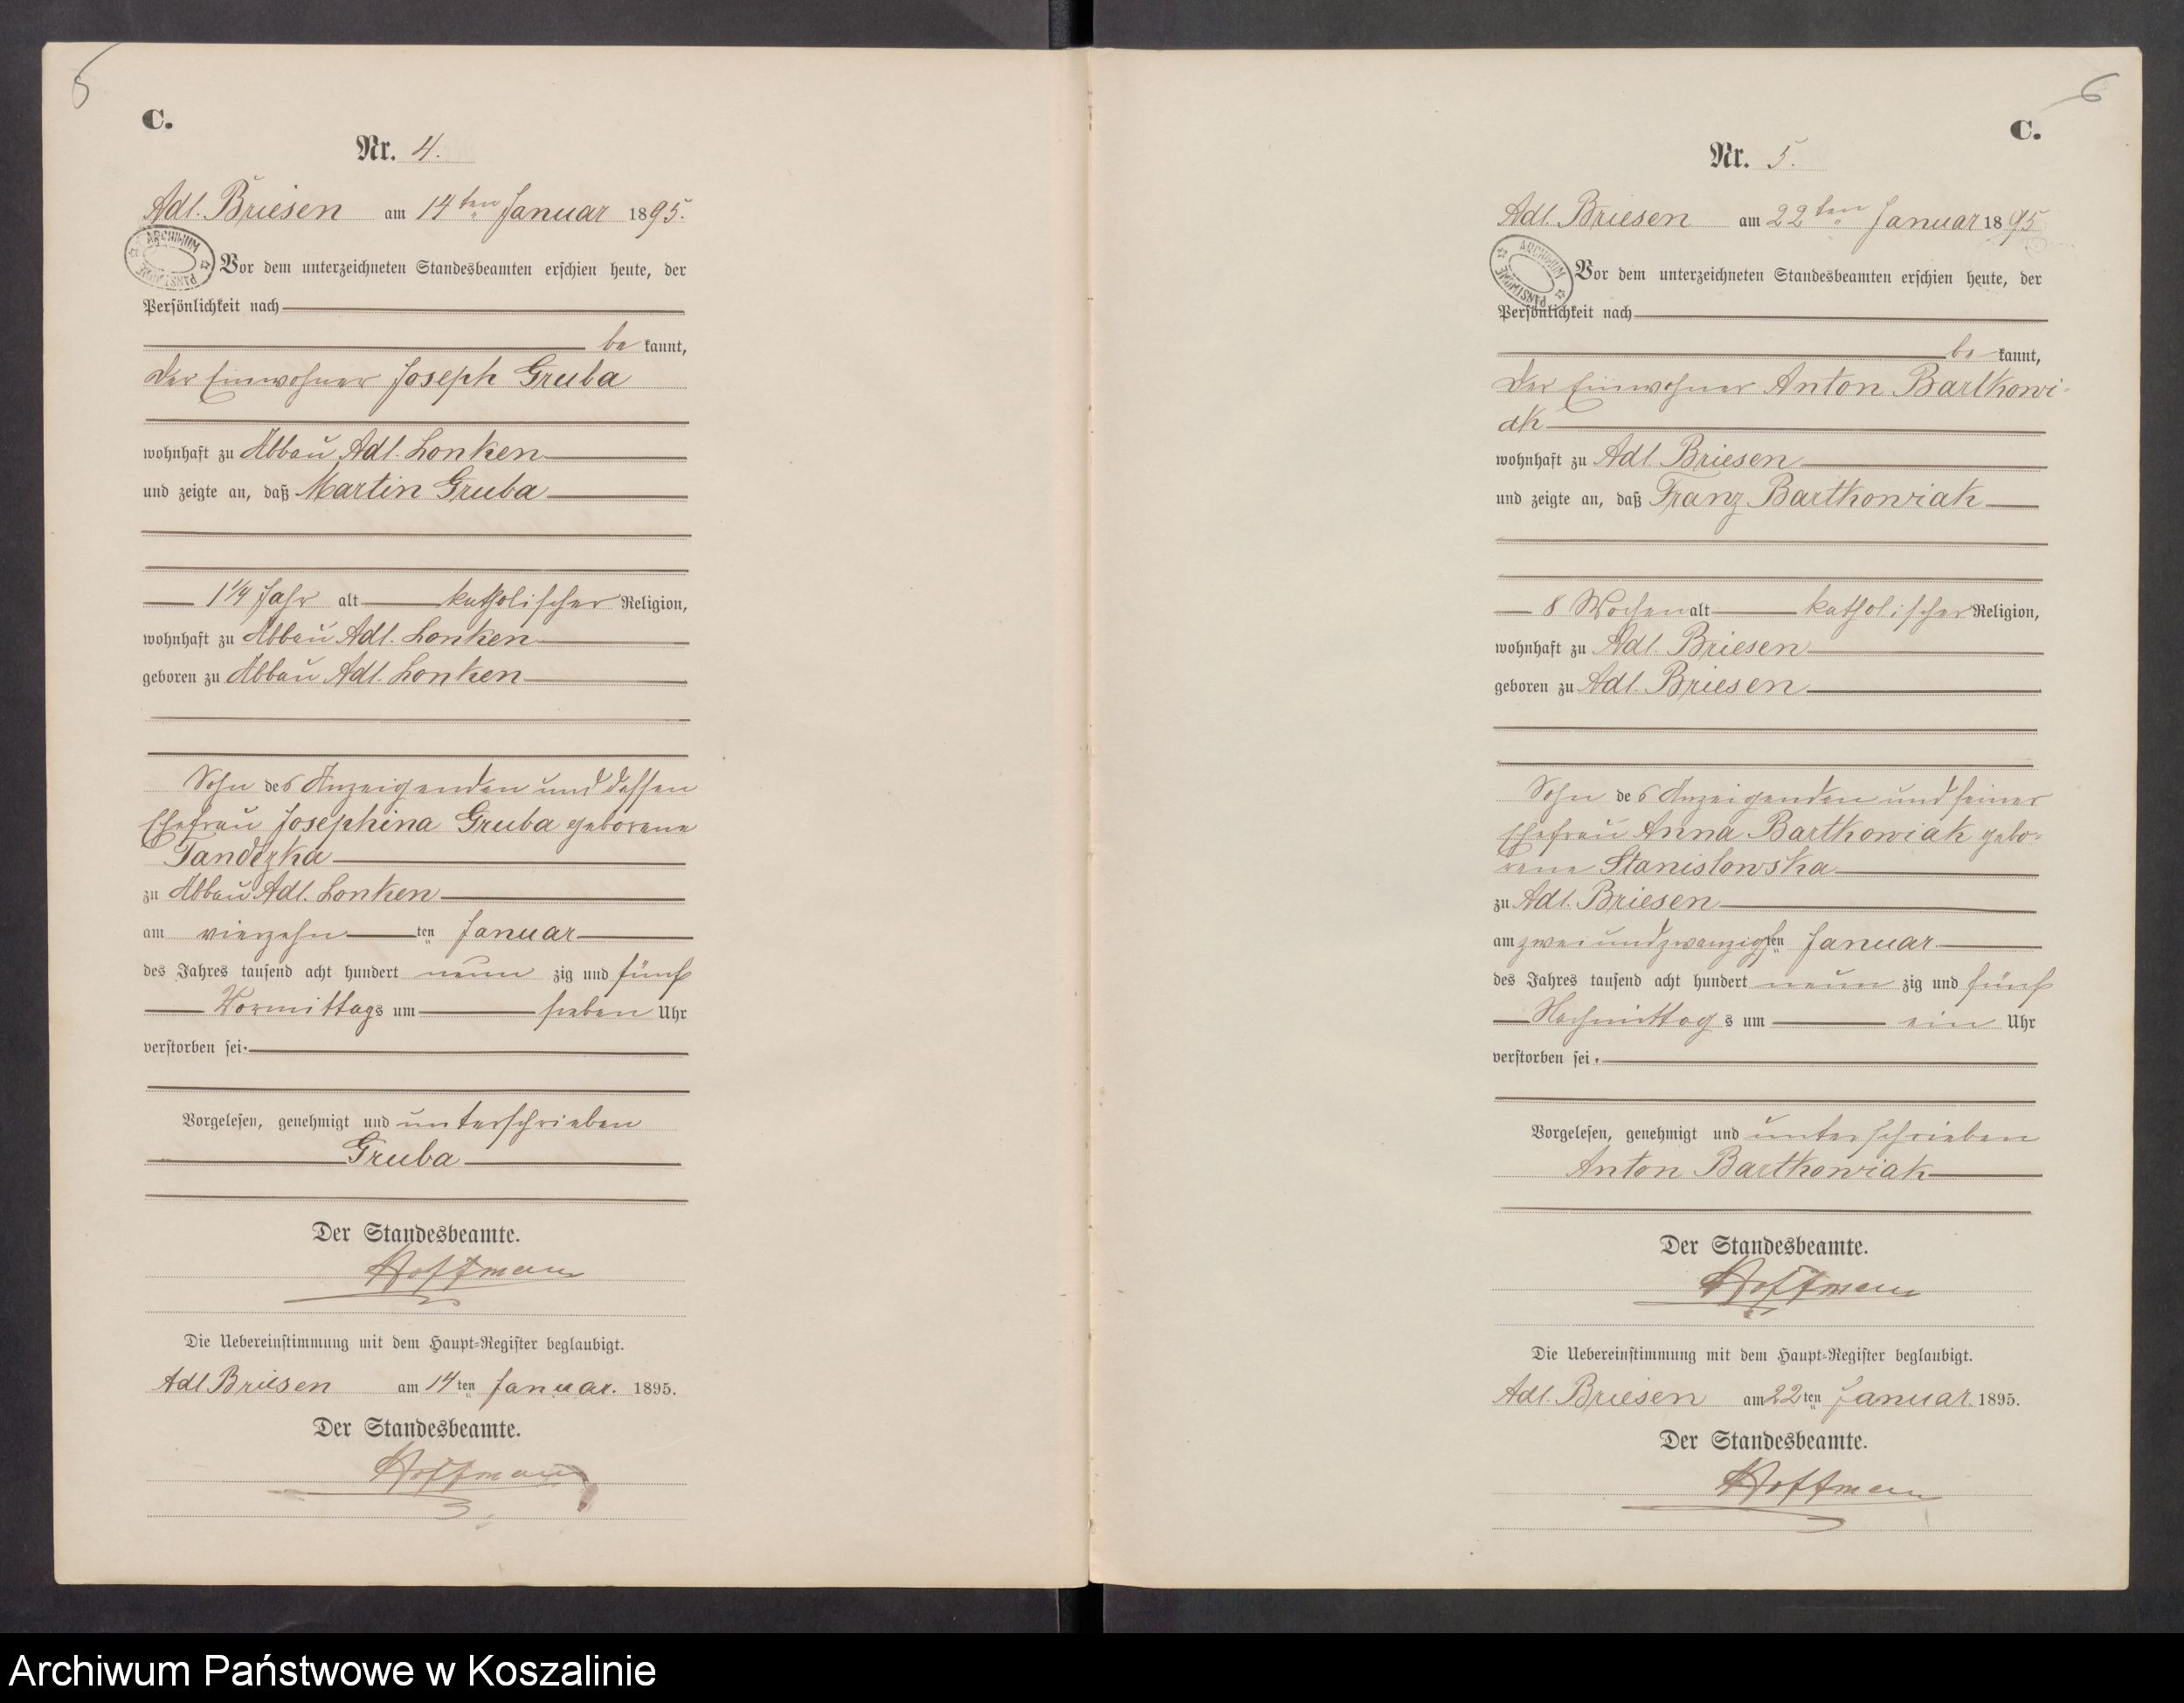 5
C.
Nr. 4.
Adl. Briesen am 14ten Januar 1895.
Vor dem unterzeichneten Standesbeamten erschien heute, der
Persönlichkeit nach
be kannt,
der Einwohner Joseph Gruba
wohnhaft zu Abbau Adl. Lonken
und zeigte an, daß Martin Gruba
1 1/4 Jahr alt katholischer Religion,
wohnhaft zu Abbau Adl. Lonken
geboren zu Abbau Adl. Lonken
Sohn des Anzeigenden und dessen
Ehefrau Josephina Gruba geborene
zu Abbau Adl. Lonken
am vierzehn ten Januar
des Jahres tausend acht hundert neun zig und fünf
Vormittags um sieben Uhr
verstorben sei.
Vorgelesen, genehmigt und unterschrieben
Gruba
Der Standesbeamte.
Hoffmann
Die Uebereinstimmung mit dem Haupt-Register beglaubigt.
Adl Briesen am 14ten Januar. 1895.
Der Standesbeamte.
Hoffmann
6
C.
Nr. 5.
Adl. Briesen am 22ten Januar 1895
Vor dem unterzeichneten Standesbeamten erschien heute, der
Persönlichkeit nach
be kannt,
der Einwohner Anton Bartkowi-
ak
wohnhaft zu Adl. Briesen
und zeigte an, daß Franz Bartkowiak
8 Wochen alt katholischer Religion,
wohnhaft zu Adl. Briesen
geboren zu Adl. Briesen
Sohn des Anzeigenden und seiner
Ehefrau Anna Bartkowiak gebo-
rene Stanislowska
zu Adl. Briesen
am zweiundzwanzigsten Januar
des Jahres tausend acht hundert neun zig und fünf
Nachmittags um ein Uhr
verstorben sei.
Vorgelesen, genehmigt und unterschrieben
Anton Bartkowiak
Der Standesbeamte.
Hoffmann
Die Uebereinstimmung mit dem Haupt-Register beglaubigt.
Adl. Briesen am 22ten Januar. 1895.
Der Standesbeamte.
Hoffmann
Archiwum Państwowe w Koszalinie